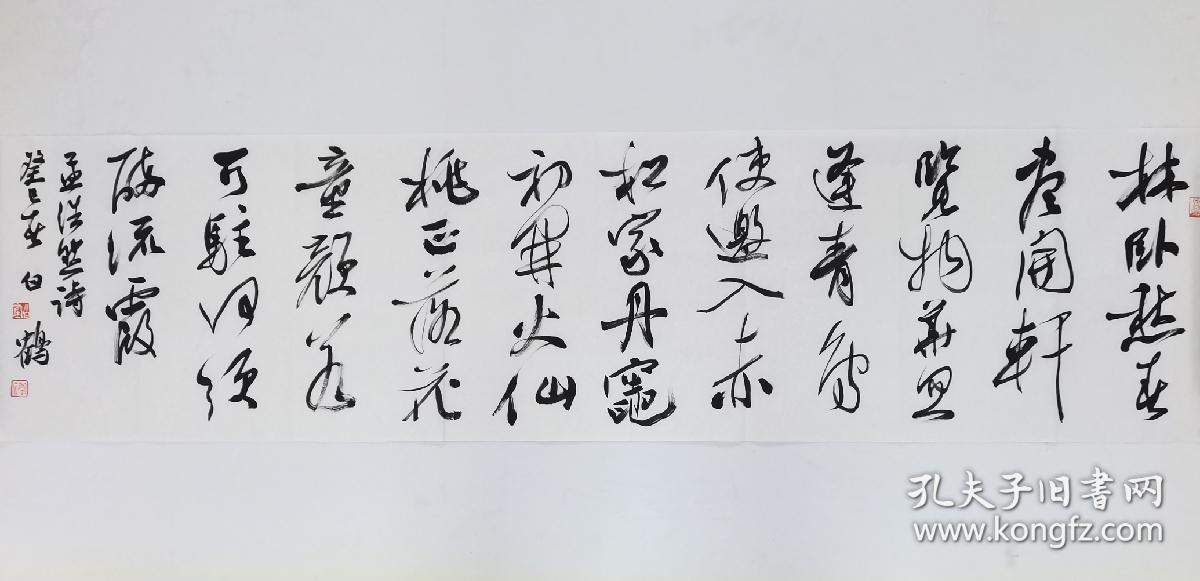 林卧愁春
盡開軒
覽物華忽
逢青鳥
使邀入赤
松家丹竈
初開火仙
桃正落花
童顏若
可駐何須
醉流霞
孟浩然詩
癸巳春 白鶴
孔夫子旧书网
www.kongfz.com